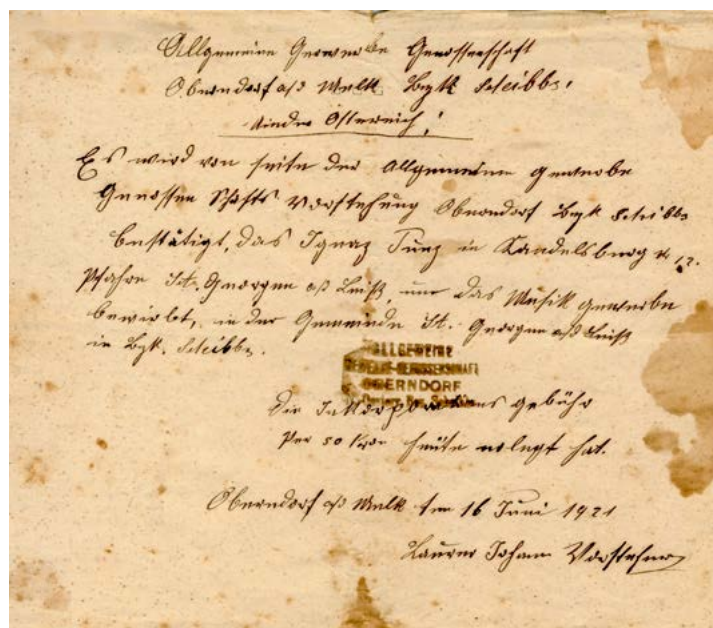 Allgemeine Gewerbe Genossenschaft
Oberndorf a/d Melk Bzk Scheibbs,
Nieder Österreich!
Es wird von seite der Allgemeinen gewerbe
Genossen Schafts Vorstehung Oberndorf Bzk Scheibbs
bestätigt, das Ignaz in Kandelsburg N 12.
Pfahre St. Georgen a/d Leiß, um das Musik gewerbe
bewirbt, in der Gemeinde St. Georgen a/d Leiß
in Bzk. Scheibbs.
ALLGEMEINE
GEWERBE-GENOSSENSCHAFT
OBERNDORF
die Inkorporations gebühr
per 50 Kron heute erlegt hat.
Oberndorf a/d Melk den 16 Juni 1921
Johann Vorsteher